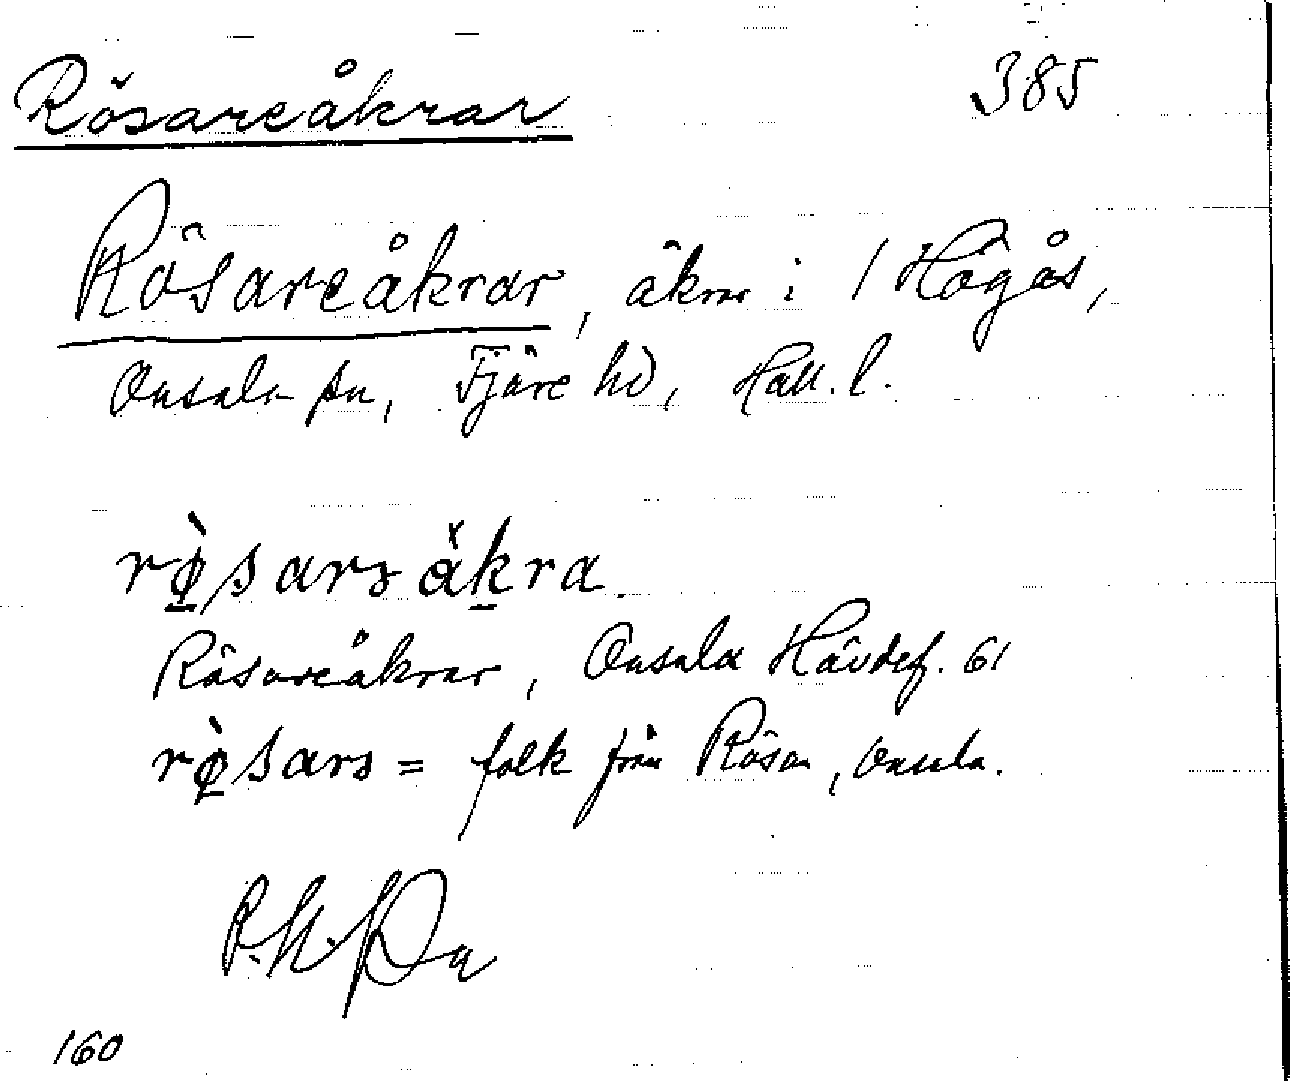 Rösareåkrar 385
Rösareåkrar, åkrar i 1 Högås,
Onsala sn, Fjäre hd, Hall. l.
rø̀sarsåkra.
Rösareåkrar, Onsala Hävdef. 61
rø̀sars = folk från Rösan, Onsala.
160